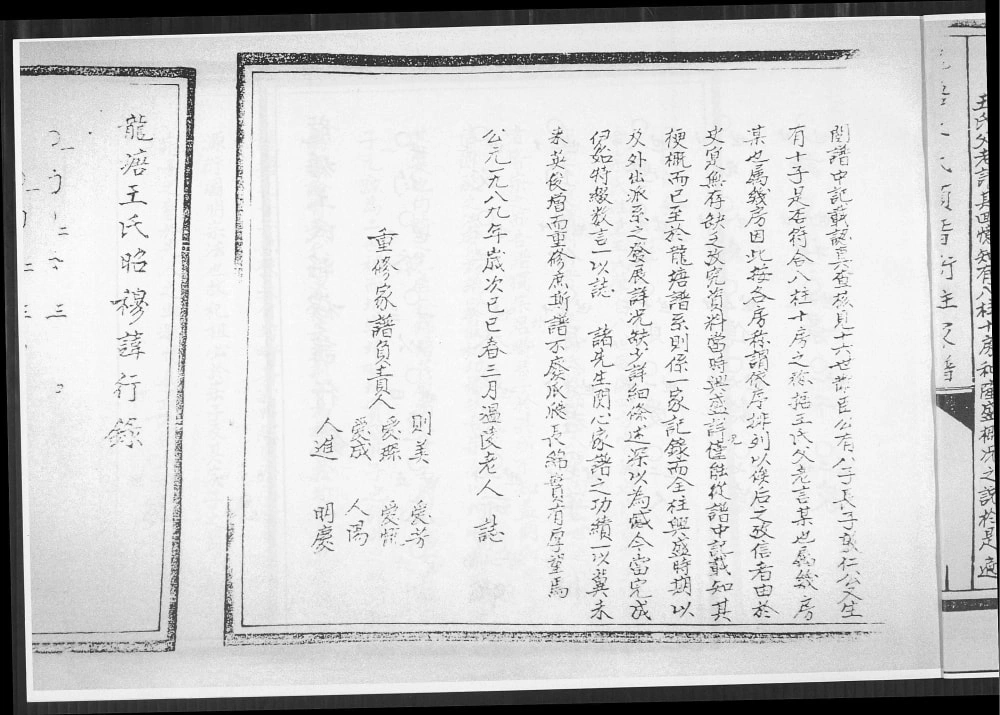 王氏父老訪其回憶知有八柱十房和隆盛概況之說於是遍
閱譜中記載認真查核見十六世 臣公有八子長子 仁公又生
有十子是否符合八柱十房之 據王氏父老言某也屬幾房
某也屬幾房因此按各房称謂依序排列以後后之攷信者由於
史冥無存缺乏攷究資料當時興盛 況僅能從譜中記載知其
梗概而已至於龍塘譜系則係一家記錄而全柱興盛時期以
及外出派系之發展詳况缺少詳細條述深以為憾今當完成
伊始特綴数言一以誌 諸先生関心家譜之功績一以冀未
來英俊增而重修庶斯譜不廢 長綿實有厚望焉
公元一九八九年歲次己巳春三月溫陵老人 誌
重修家譜負責人
則美 愛芳
愛琛 愛
愛成 人陽
人進 明慶
龍塘王氏昭穆諱行錄